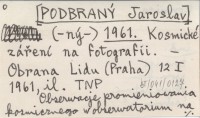 [PODBRANÝ Jaroslav]
(-ný-) 1961. Kosmické
záření na fotografii. -
Obrana Lidu (Praha) 12 I
1961, il. TNP
Obserwacje promieniowania
kosmicznego w obserwatorium na